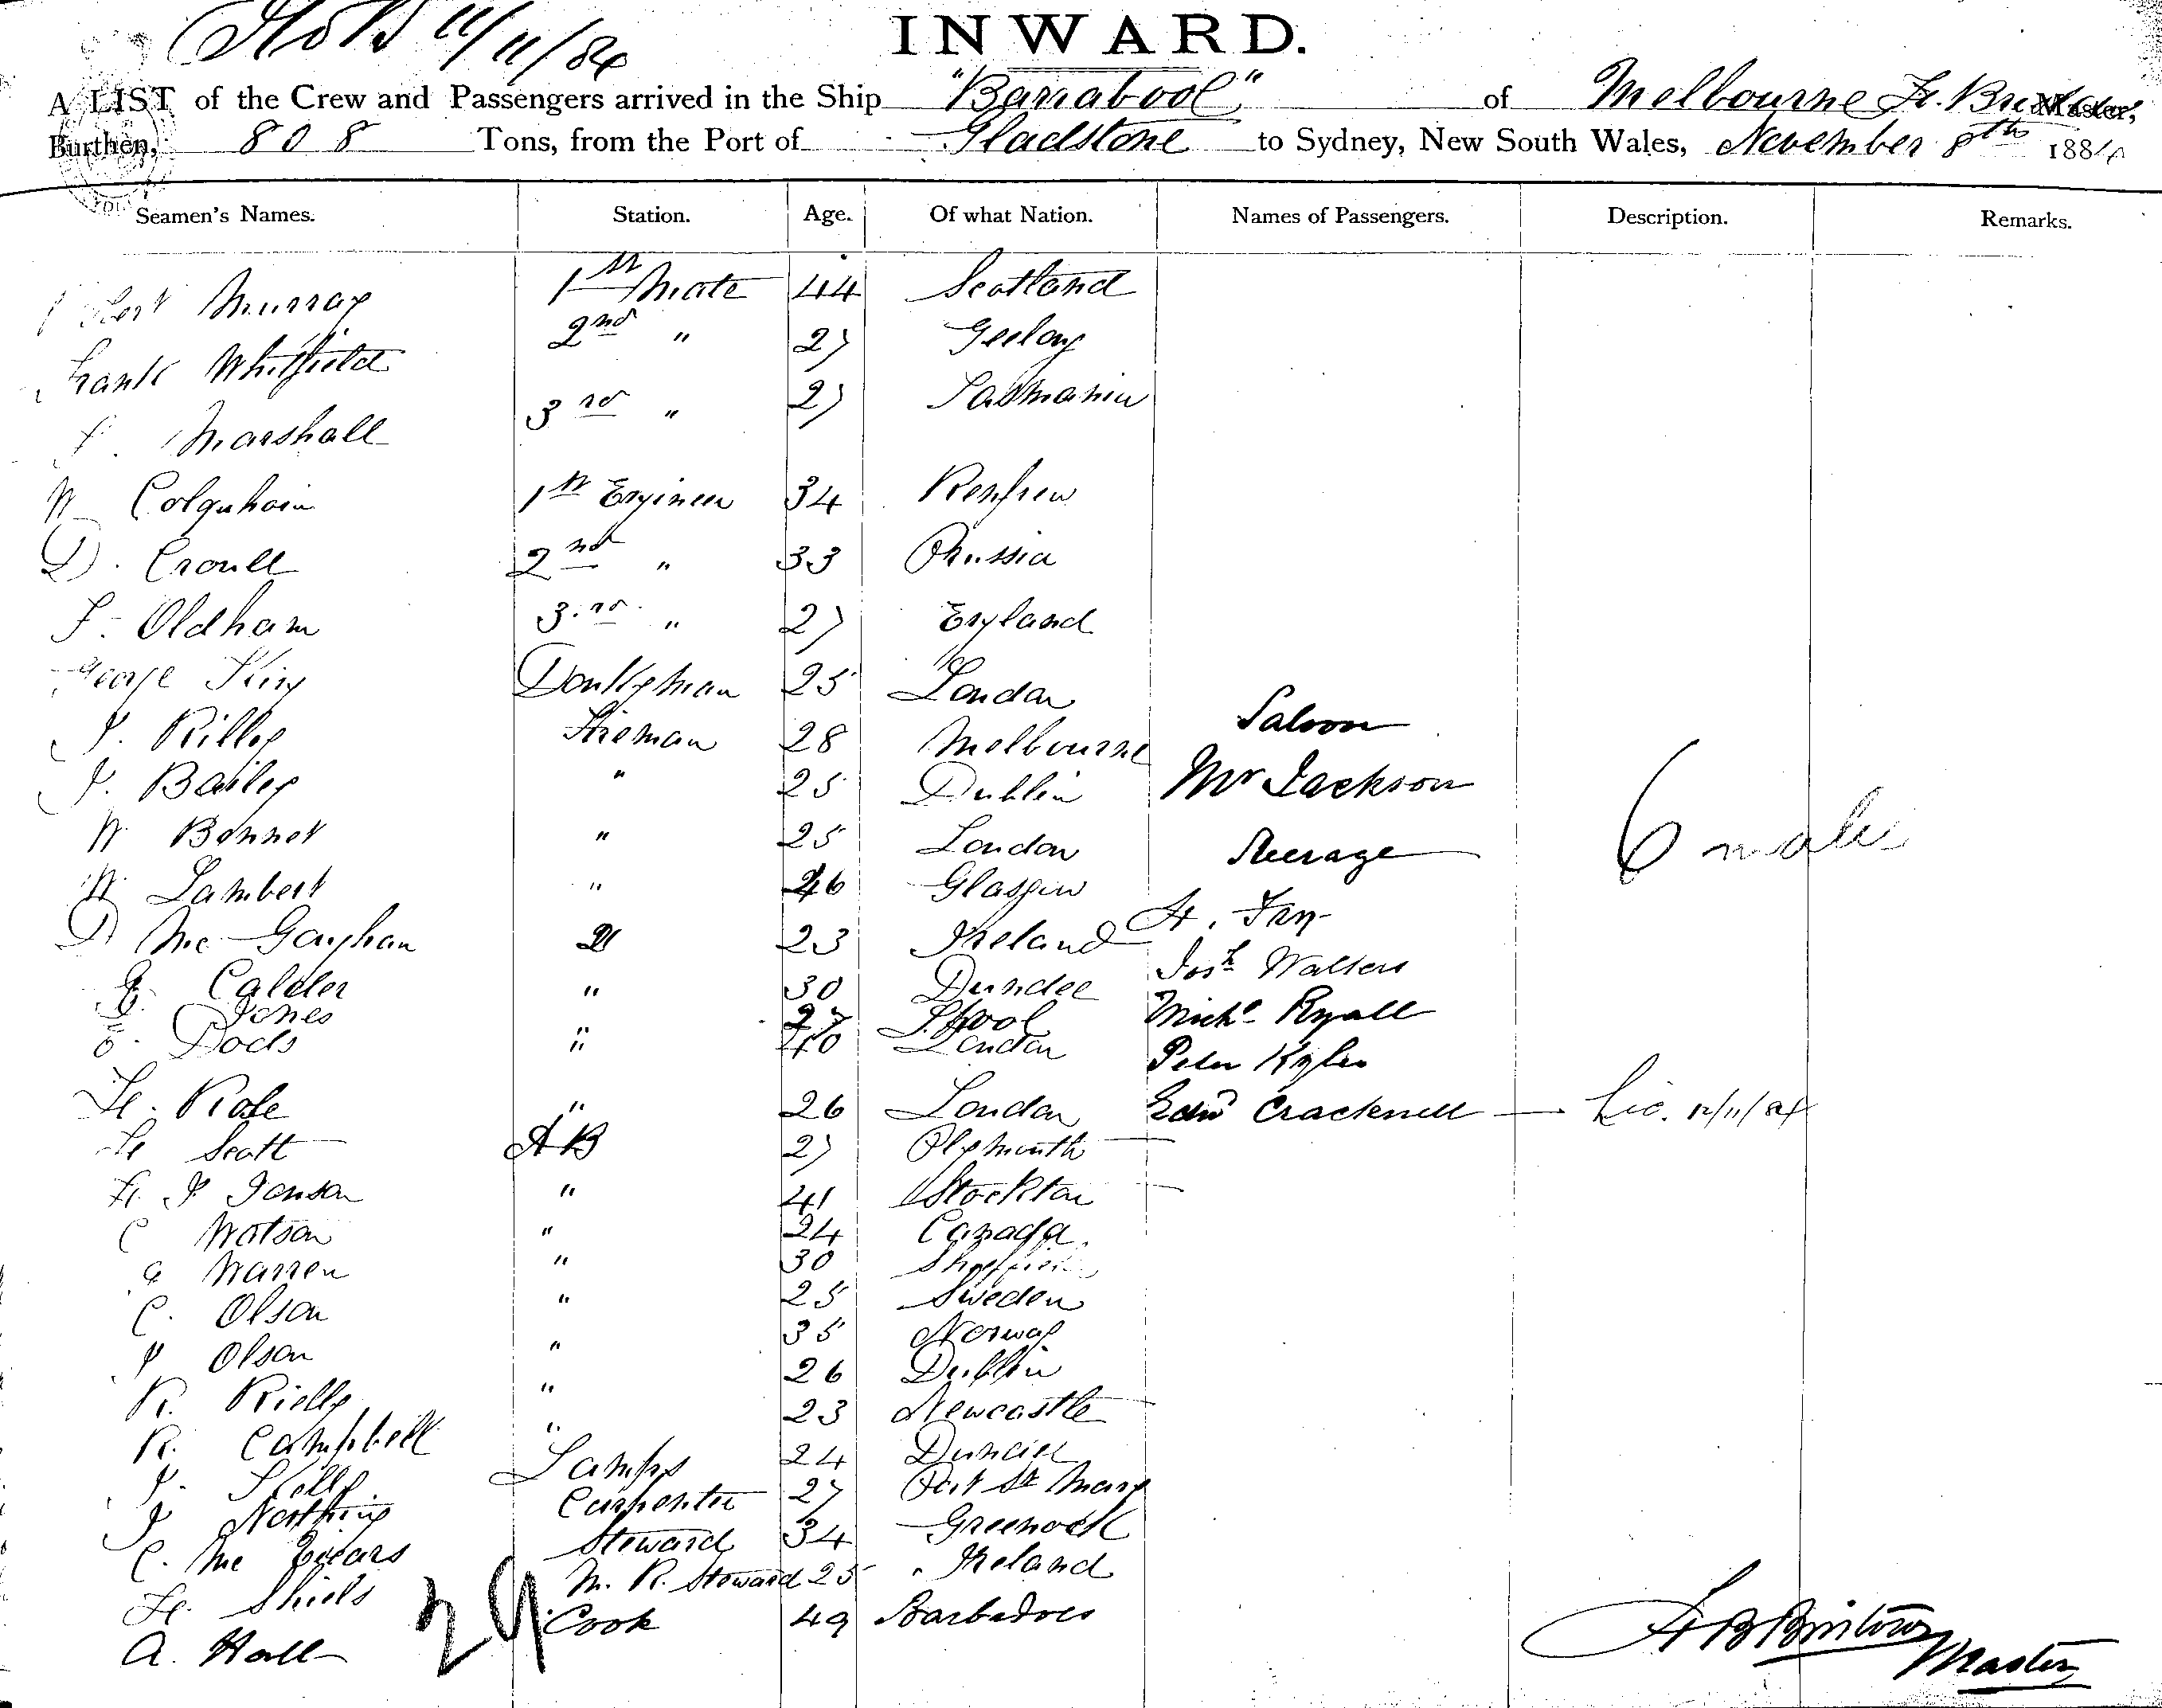 11/11/84
INWARD.
A LIST of the Crew and Passengers arrived in the Ship "Barrabool" of Melbourne Master,
Burthen, 808 Tons, from the Port of Gladstone to Sydney, New South Wales, November 8th 1884
Seamen's Names. Station. Age. Of what Nation. Names of Passengers. Description. Remarks.
Murray 1st Mate 44 Scotland
Frank Whitfield 2nd " 27 Geelong
Marshall 3rd " 27 Tasmania
W Colquhoin 1st Engineer 34 Renfrew
D. Croull 2nd " 33 Prussia
Oldham 3rd " 27 England
George King Donkyman 25 London
Saloon
J. Rilley Fireman 28 Melbourne
J. Bailey " 25 Dublin Mr Jackson
W Bonnet " 25 London Steerage 6 male
W Lambert " 26 Glasgow
D McGaughan " 23 Ireland H. Fry
Calder " 30 Dundee Josh Walters
Jones " 27 L.pool Michl Ryall
Dods " 40 London Peter Kyler
H. Rose " 26 London Edwd Cracknell — Lic. 12/11/84
H Scott AB 27 Plymouth
H. J Jonson " 41 Stockton
C Watson " 24 Canada
G Warren " 30 Sheffield
C. Olson " 25 Sweden
P Olson " 35 Norway
R. Rielly " 26 Dublin
R. Campbell " 23 Newcastle
J. Kelly Lamps 24 Dundee
J Northing Carpenter 27 Port St Mary
C. Mc Steward 34 Greenock
H. Shiels M. R. Steward 25 Ireland
A. Hall Cook 49 Barbadoes
29
Master